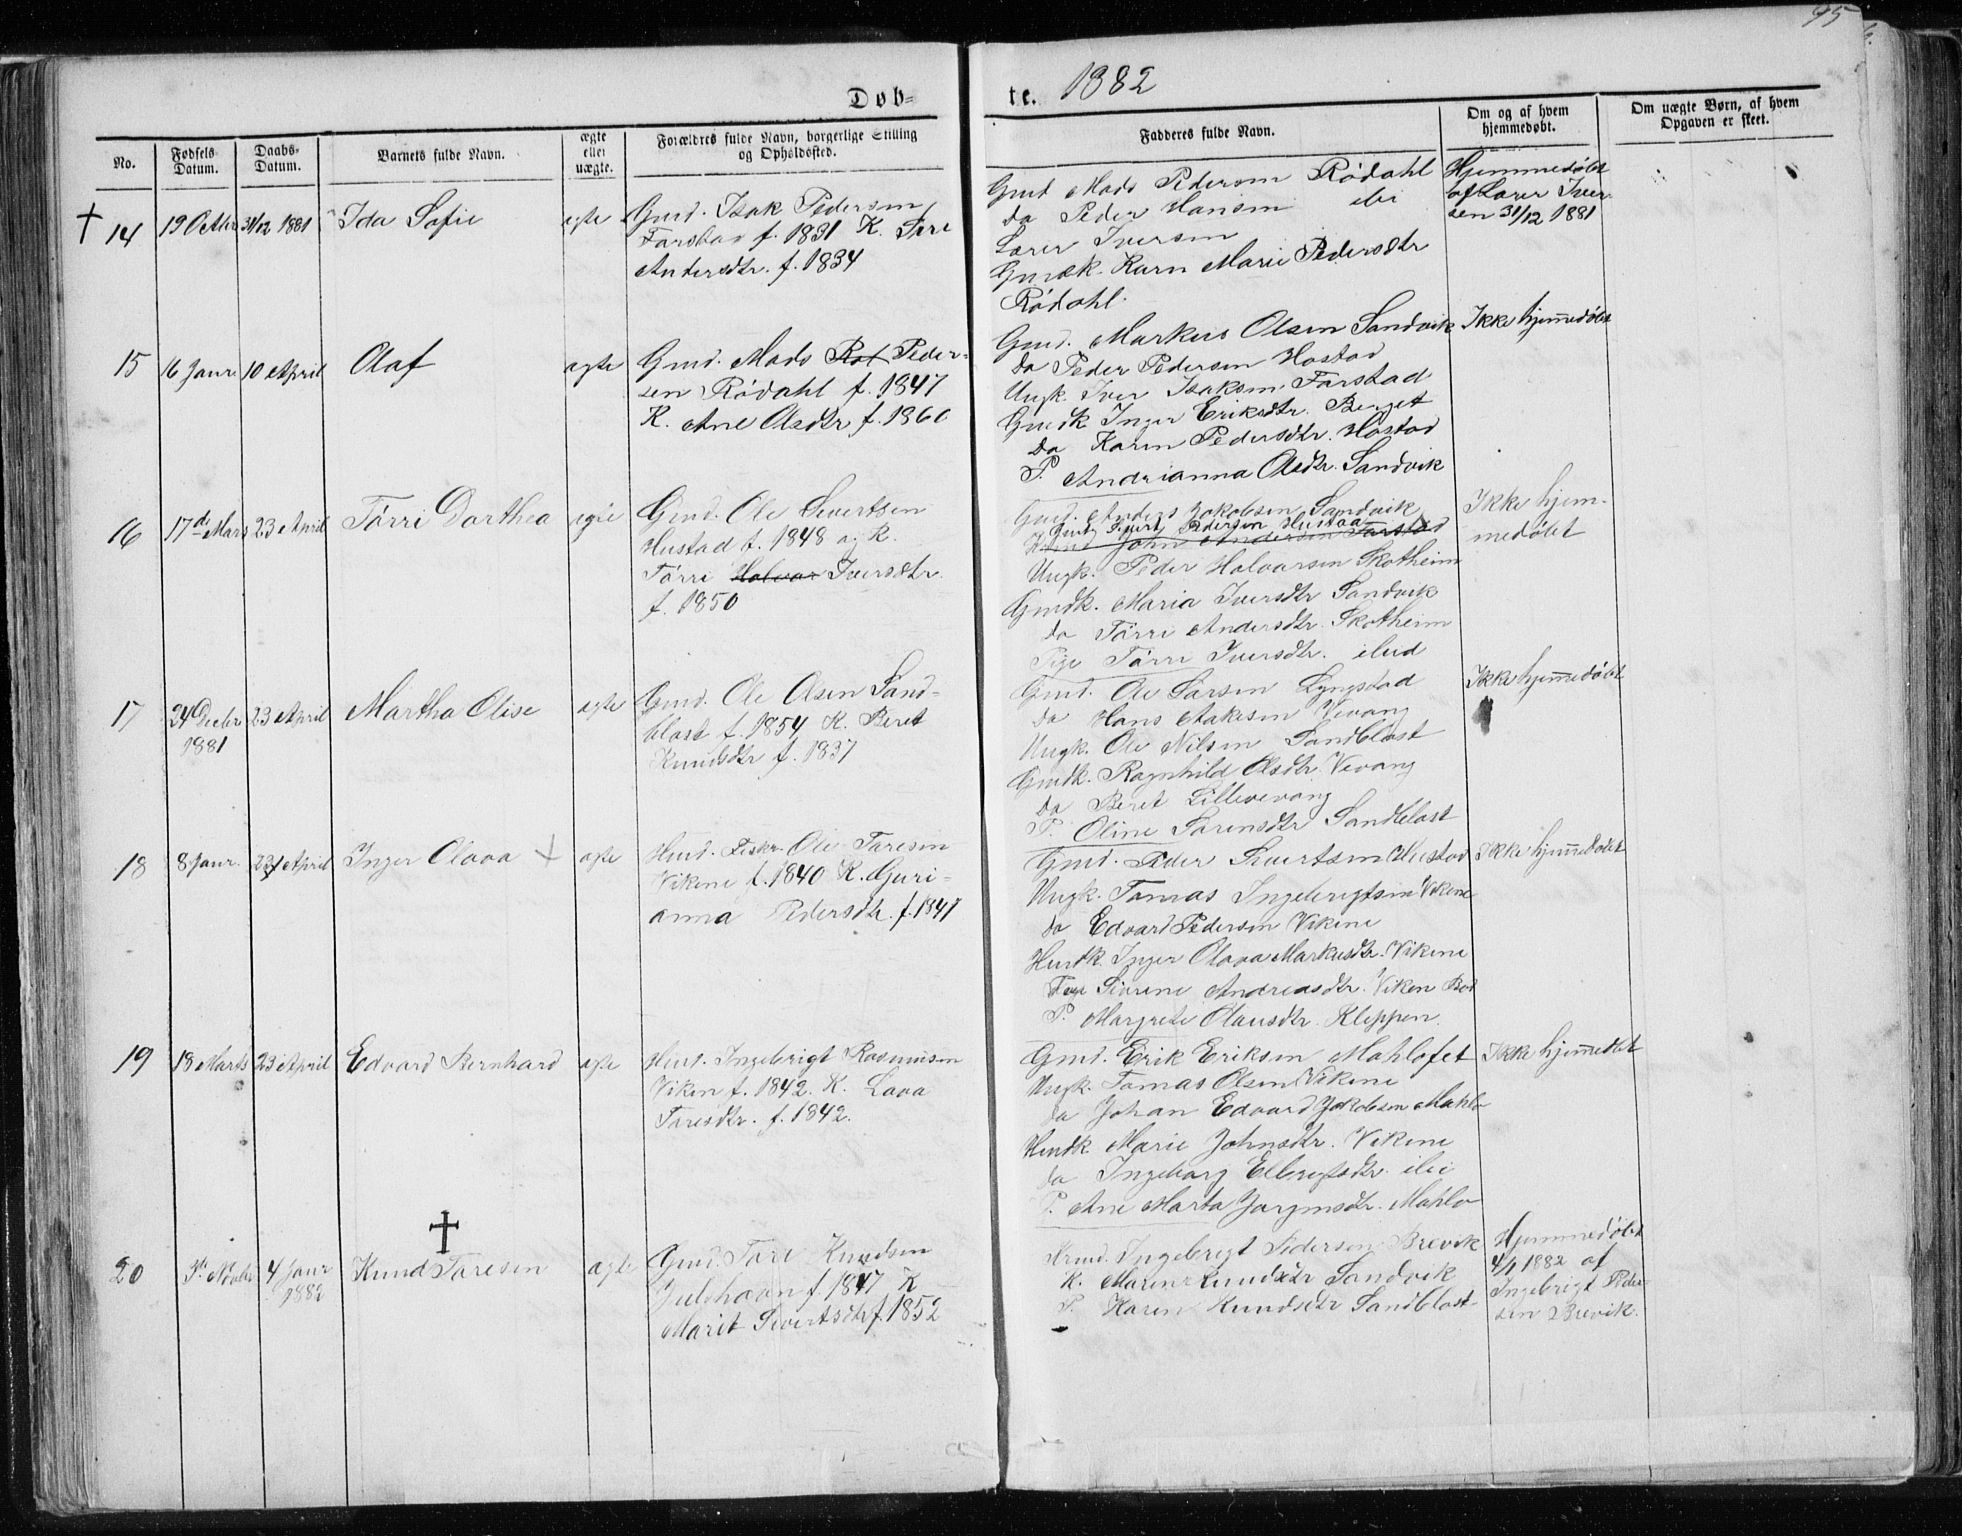 95
Døb=
te. 1882
No.
Fødsels Datum.
Daabs- Datum.
Barnets fulde Navn.
ægte eller uægte.
Forældres fulde Navn, borgerlige Stilling
og Opholdssted.
Fadderes fulde Navn.
Om og af hvem
hjemmedøbt.
Om uægte Børn, af hvem
Opgaven er skeet.
† 14 19 Octbr 31/12 1881 Ida Sofie ægte
Gmd. Isak Pedersen
Farstad f. 1831 K. Sire
Andersdtr. f. 1834
Gmd Mads Pedersen Rødahl
do Peder Hansen ibi
Lærer Iversen
Gmdk. Karn Marie Pedersdtr
Rødahl.
Hjemmedøbt
af Lærer Iver
sen 31/12 1881
15 16 Janr 10 April Olaf ægte
Gmd. Mads Rød Peder-
sen Rødahl f. 1847
K. Ane Olsdtr f. 1860
Gmd. Markus Olsen Sandvik
do Peder Pedersen Hostad
Ungk. Iver Isaksen Farstad
Gmdk Inger Eriksdtr. Berget
do Karen Pedersdtr. Hostad
P. Andrianna Olsdtr. Sandvik
Ikke hjemmedøbt
16 17de Mars 23 April Tørri Dorthea ægte
Gmd. Ole Sivertsen
Hustad f. 1848 og K.
Tørri Halvor Iversdtr.
f. 1850
Gmd. Anders Jakobsen Sandvik
Gmd Sivert Pedersen Hustad
Gmd John Andersen Farstad
Ungk. Peder Halvorsen Skotheim
Gmdk. Maria Iversdtr Sandvik
do Tørri Andersdtr. Skotheim
Pige Tørri Iversdtr. ibid
Ikke hjem-
medøbt
17 24 Decbr 23 April Martha Olise ægte
1881
Gmd. Ole Olsen Sand-
blast f. 1854 K. Beret
Knudsdtr f. 1837
Gmd. Ole Larsen Lyngstad
do Hans Aakesen Vevang
Ungk. Ole Nilsen Sandblast
Gmdk. Ragnhild Olsdtr. Vevang
do Beret Lillevevang
P. Oline Sørensdtr Sandblast
Ikke hjemmedøbt
18 8 Janr. 23 April Inger Olava + ægte
Hmd. Fisker Ole Taresen
Vikene f. 1840 K. Guri-
anna Pedersdtr. f. 1847
Gmd. Peder Sivertsen Hustad
Ungk. Tomas Ingebrigtsen Vikene
do Edvard Pedersen Vikene
Hmdk. Inger Olava Markusdtr. Vikene
Pige Sivrine Andreasdtr. Viken Bod
P. Margrete Olausdtr. Kleppen.
Ikke hjemmedøbt
19 18 Marts 23 April Edvard Bernhard ægte
Hmd. Ingebrigt Rasmusen
Viken f. 1842. K. Lava
Taresdtr. f. 1842.
Gmd. Erik Eriksen Mahlofet
Ungk. Tomas Olsen Vikene
do Johan Edvard Jakobsen Mahlo
Hmdk Marie Johnsdtr. Vikene
do Ingeborg Ellingsdtr. ibi
P. Ane Marta Jørgensdtr. Mahlo
Ikke hjemmedøbt
†
20 Novbr 4 Janr 1882 Knud Taresen ægte
Gmd. Tare Knudsen
Julshavn f. 1847 K
Marit Sivertsdtr f. 1852
Ingebrigt Pedersen Brevik
K. Maren Knudsdtr Sandvik
P. Karen Knudsdtr Sandblast
Hjemmedøbt
4/1 1882 af
Ingebrigt Peder-
sen Brevik.